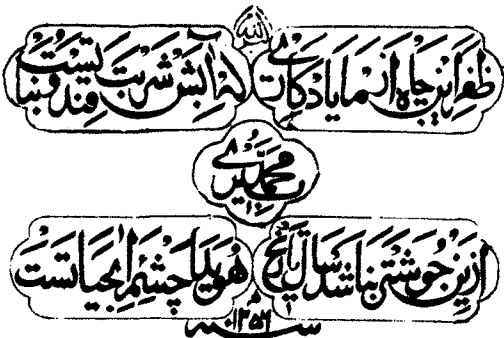 الله
ظفر این چاه از ما یادگاری که آبش شربت قند و نباتست
محمد
ازین خوشتر نباشد سال تاریخ هویدا چشمه آبحیاتست
سنه ۱۲۵۶